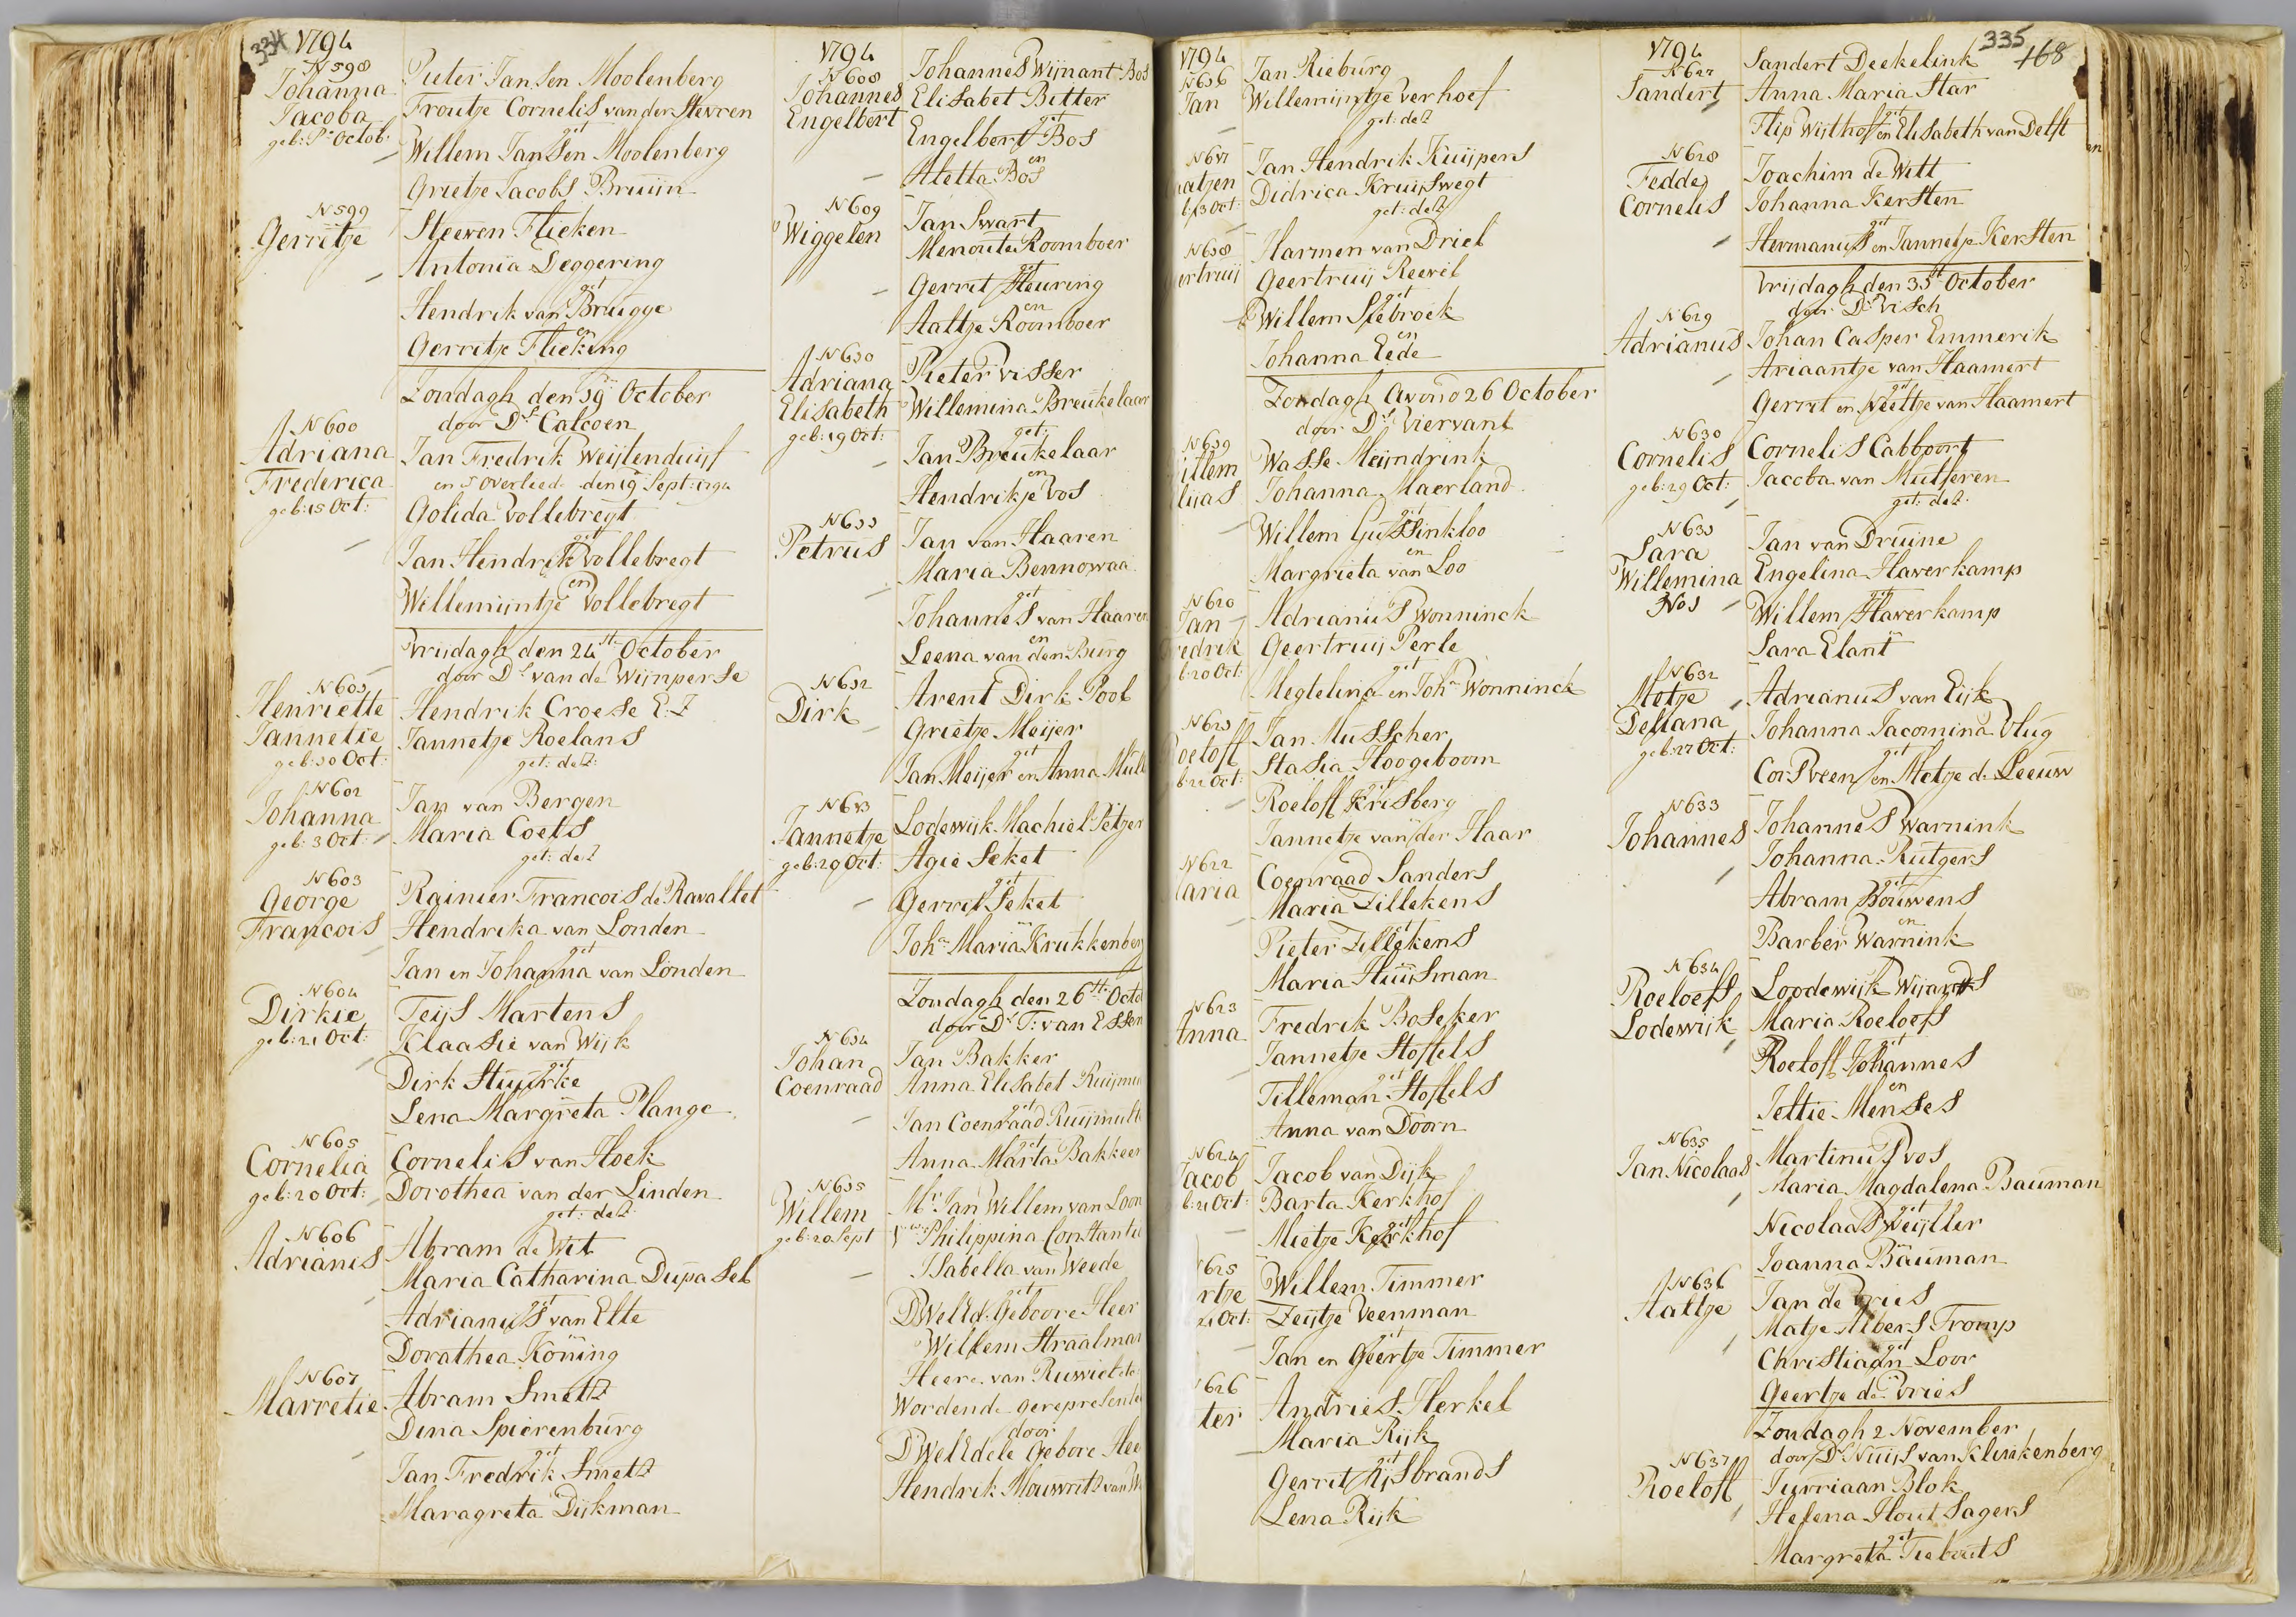 334
1794
N 598
Johanna
Jacoba
geb: Pr Octob:
Pieter Jansen Moolenberg
Froutje Cornelis van der Stevren
get
Willem Jansen Moolenberg
Grietje Jacobs Bruijn
N 599
Gerritje
Steeven Flieken
Antonia Deggering
get
Hendrik van Brugge
en
Gerritje Flieking
Zondagh den 19 October
door Ds Calcoen
N 600
Adriana
Frederica
geb: 15 Oct:
Jan Fredrik Weijtenduijf
en is overleed. den 19 Sept: 1794
Golida Vollebregt
get
Jan Hendrik Vollebregt
en
Willemijntje Vollebregt
Vrijdagh den 24st October
door Ds van de Wijnperse
N 601
Henriette
Jannetie
geb: 10 Oct:
Hendrik Croese E:Z
Jannetje Roelans
get: de 2:
N 602
Johanna
geb: 3 Oct:
Jan van Bergen
Maria Coets
get: de 2
N 603
George
Francois
Rainier Francois de Ravallet
Hendrika van Londen
get
Jan en Johanna van Londen
N 604
Dirkie
geb: 21 Oct:
Teijs Martens
Klaasie van Wijk
get
Dirk Stuurke
Lena Margreta Plange
N 605
Cornelia
geb: 20 Oct:
Cornelis van Hoek
Dorothea van der Linden
get: de 2:
N 606
Adrianis
Abram de Wit
Maria Catharina Dupasel
get
Adrianus van Elte
Dorathea Köning
N 607
Marretie
Abram Smett
Dina Spierenburg
get
Jan Fredrik Smett
Maragreta Dijkman
1794
N 608
Johannes
Engelbert
Johannes Wijnant Bos
Elisabet Bitter
get
Engelbert Bos
en
Aletta Bos
N 609
Wiggelen
Jan Swart
Menoute Roomboer
get
Gerrit Heuring
en
Aaltje Roomboer
N 610
Adriana
Elisabeth
geb: 19 Oct:
Pieter Visser
Willemina Breukelaar
get:
Jan Breukelaar
en
Hendrikje Vos
N 611
Petrus
Jan van Haaren
Maria Bennowaa
get
Johannes van Haaren
en
Leena van den Burg
N 612
Dirk
Arent Dirk Pool
Grietje Meijer
get
Jan Meijer en Anna Mull
N 613
Jannetje
geb: 19 Oct:
Lodewijk Machiel Petzer
Agie Seket
get
Gerret Seket
en
Joha Maria Krukkenberg
Zondagh den 26st Octo
door Ds T: van Essen
N 614
Johan
Coenraad
Jan Bakker
Anna Elisabet Ruijmu
get
Jan Coenraad Ruijmult
get
Anna Marta Bakker
N 615
Willem
geb: 20 Sept
Mr Jan Willem van Loon
Vrouwe Philippina Constantia
Isabella van Weede
get
DWelld. Geboore Heer
Willem Straalman
Heere van Ruwiel etc
Wordende gerepresente
door
DWelEdele Gebore Hee
Hendrik Mouwrits van W
1794
N 616
Jan
Jan Rieburg
Willemijntje Verhoef
get: de 2
N 617
aatjen
b: 13 Oct:
Jan Hendrik Kuijpers
Didrica Kruijswegt
get: de 2
N 618
ertruij
Harmen van Driel
Geertruij Reevel
get
Willem Stebroek
en
Johanna Eede
Zondagh Avond 26 October
door Ds Viervant
N 619
illem
lijas
Wasse Meijndrink
Johanna Maerland
get
Willem Gussinkloo
en
Margrieta van Loo
N 620
Jan
redrik
b: 20 Oct:
Adrianus Wonninck
Geertruij Perle
get
Megtelina en Joha Wonninck
N 621
Roeloff
b: 21 Oct:
Jan Musscher
Stasia Hoogeboom
get
Roeloff Krisberg
Jannetje van der Haar
N 622
aria
Coenraad Sanders
Maria Zillekens
get
Pieter Zillekens
Maria Huijsman
N 623
Anna
Fredrik Boseker
Jannetje Stoffels
get
Tilleman Stoffels
Anna van Doorn
N 624
Jacob
b: 21 Oct:
Jacob van Dijk
Barta Kerkhof
get
Mietje Kerkhof
625
rtje
21 Oct:
Willem Timmer
Zeijtje Veenman
get
Jan en Geertje Timmer
626
ter
Andries Herkel
Maria Rijk
get
Gerrit Gijsbrands
Lena Rijk
335
168
1794
N 627
Sandert
Sandert Deekelink
Anna Maria Star
get
Flip Wijthof en Elisabeth van Delft
N 628
Fedde
Cornelis
Joachim de Witt
Johanna Kersten
get
Hermanus en Jannetje Kersten
Vrijdagh den 31st October
door Ds Visch
N 629
Adrianus
Johan Casper Emmerik
Ariaantje van Haamert
get
Gerrit en Neeltje van Haamert
N 630
Cornelis
geb: 29 Oct:
Cornelis Cabboort
Jacoba van Mutseren
get: de 2:
N 631
Sara
Willemina
Nos
Jan van Druine
Engelina Haverkamp
get
Willem Haverkamp
Sara Elant
N 632
Metje
Deliana
geb: 27 Oct:
Adrianus van Eijk
Johanna Jacomina Vlug
get
Cor: Pveen en Metje de Leeuw
N 633
Johannes
Johannes Warnink
Johanna Rutgers
get
Abram Bouwens
en
Barber Warnink
N 634
Roeloefs
Lodewijk
Loodewijk Wijands
Maria Roeloefs
get
Roeloff Johannes
en
Jeltie Menses
N 635
Jan Nicolaas
Martinus Vos
Maria Magdalena Bauman
get
Nicolaas Weijller
Joanna Bauman
N 636
Aaltje
Jan de Vries
Matje Albers Tromp
get
Christiaan Loor
Geertje de Vries
Zondagh 2 November
door Ds Nuijs van Klinkenberg
N 637
Roeloff
Jurriaan Blok
Helena Hout Sagers
get
Margreta Tiebouts